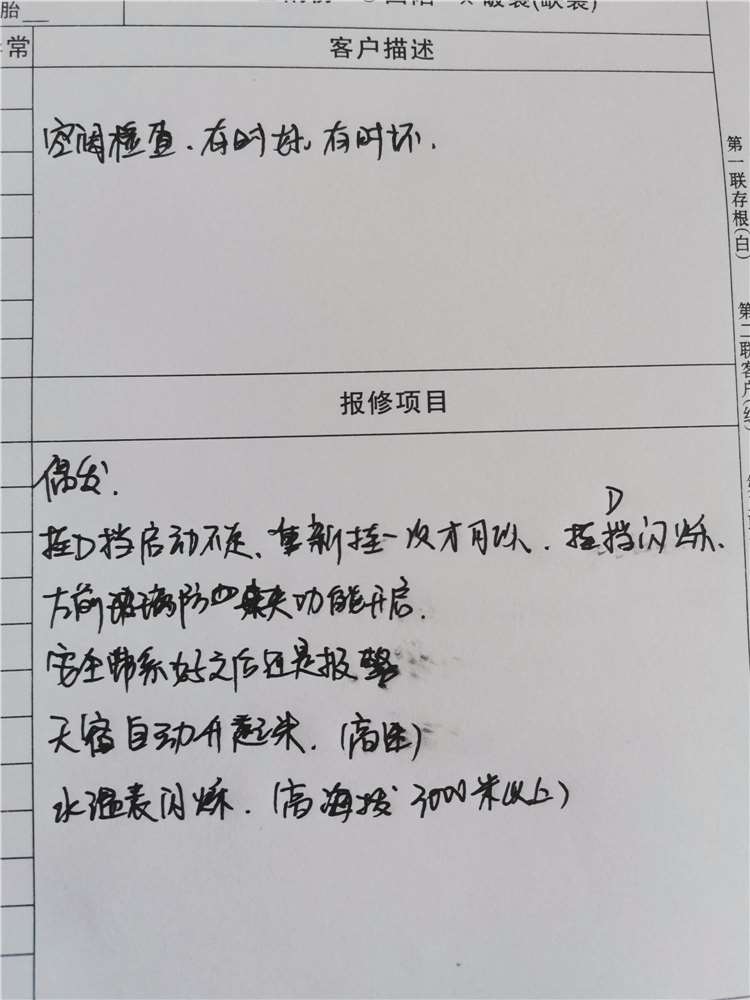 胎
破裂(缺装)
常
客户描述
空调检查、有时好、有时坏.
第一联存根(白)
第二联客户(红)
报修项目
偶发.
D
挂D挡启动不走、重新挂一次才可以. 挂挡闪烁、
左前玻璃防夹功能开启.
安全带系好之后还是报警
天窗自动开起来. (高速)
水温表闪烁. (高海拔 3000米以上)